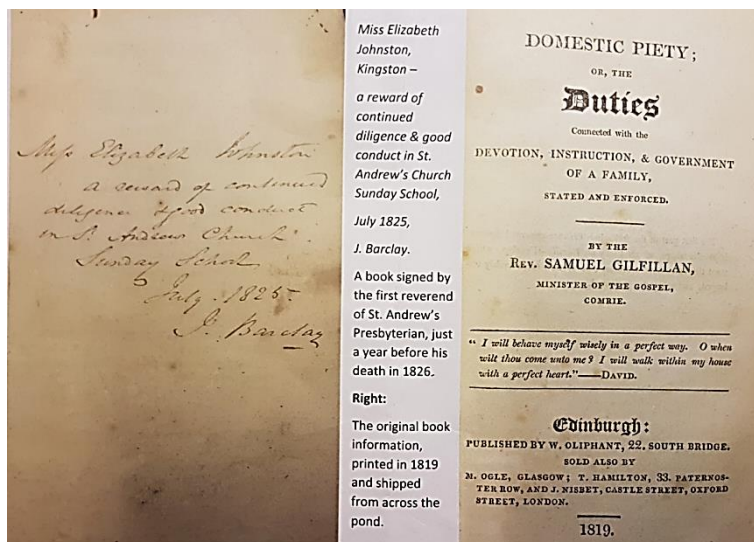 Miss Elizabeth Johnston
a reward of continued
diligence & good conduct
in St. Andrews Church
Sunday School
July 1825
J. Barclay
Miss Elizabeth
Johnston,
Kingston –
a reward of
continued
diligence & good
conduct in St.
Andrew's Church
Sunday School,
July 1825,
J. Barclay.
A book signed by
the first reverend
of St. Andrew's
Presbyterian, just
a year before his
death in 1826.
Right:
The original book
information,
printed in 1819
and shipped
from across the
pond.
DOMESTIC PIETY;
OR, THE
Duties
Connected with the
DEVOTION, INSTRUCTION, & GOVERNMENT
OF A FAMILY,
STATED AND ENFORCED.
BY THE
REV. SAMUEL GILFILLAN,
MINISTER OF THE GOSPEL,
COMRIE.
" I will behave myself wisely in a perfect way. O when
wilt thou come unto me? I will walk within my house
with a perfect heart."——DAVID.
Edinburgh:
PUBLISHED BY W. OLIPHANT, 22. SOUTH BRIDGE.
SOLD ALSO BY
M. OGLE, GLASGOW; T. HAMILTON, 33. PATERNOS-
TER ROW, AND J. NISBET, CASTLE STREET, OXFORD
STREET, LONDON.
1819.